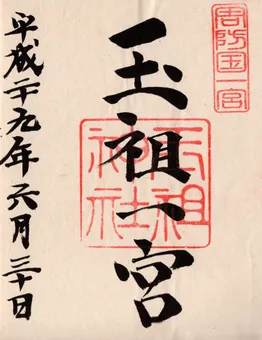 周防国一宮
玉祖一宮
玉祖神社
平成二十九年六月三十日